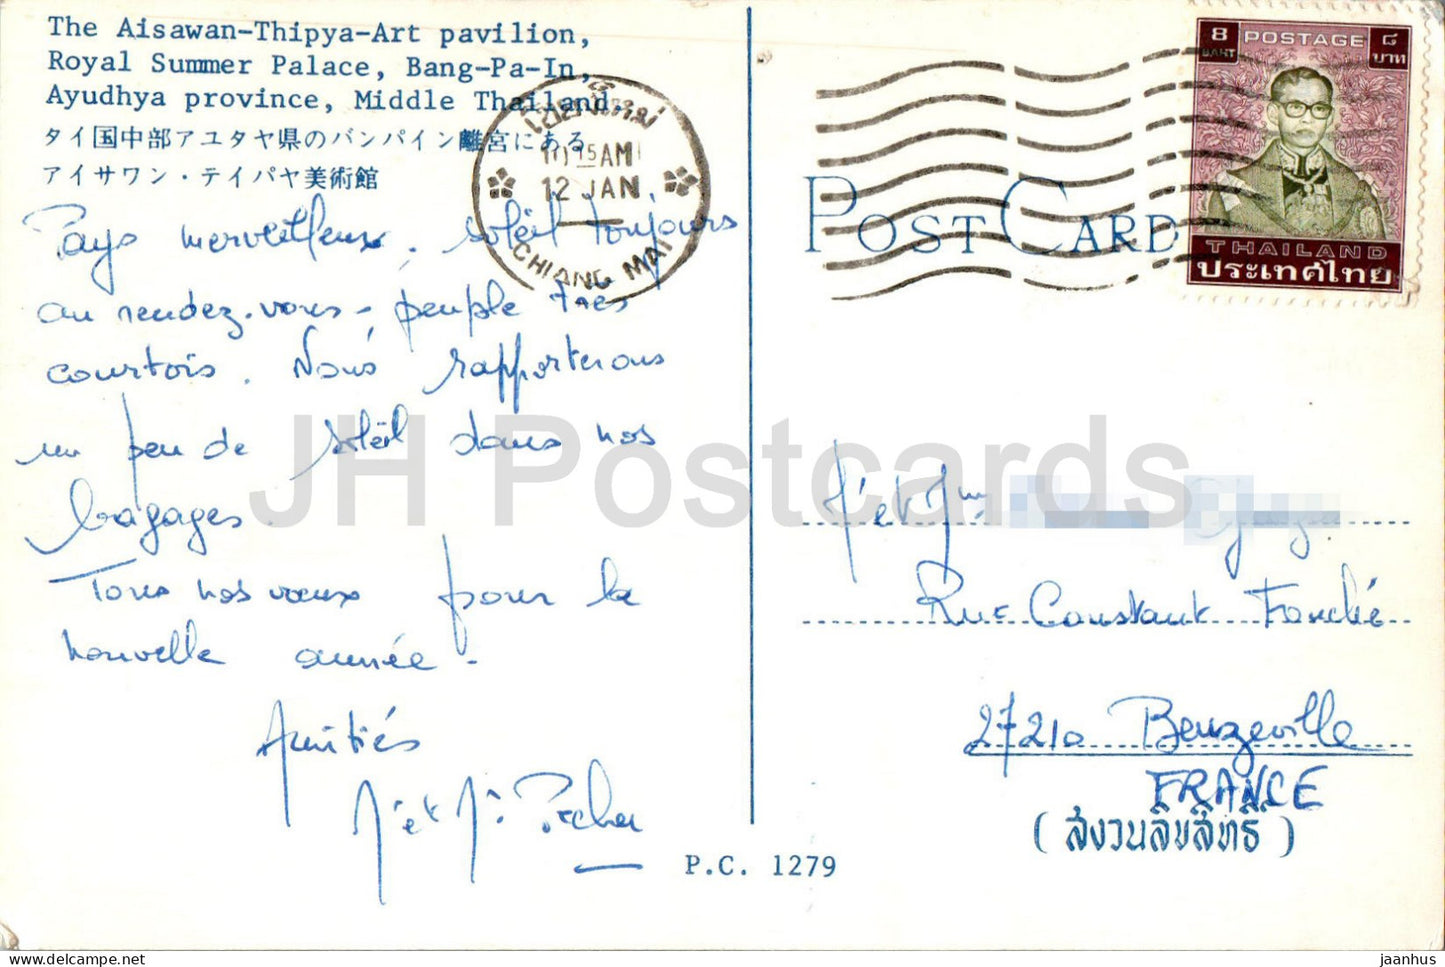 The Aisawan-Thipya-Art pavilion,
Royal Summer Palace, Bang-Pa-In,
Ayudhya province, Middle Thailand.
タイ国中部アユタヤ県のバンパイン離宮にある
アイサワン・テイパヤ美術館
Pays merveilleux. soleil toujours
au rendez-vous - peuple très
courtois. Nous rapporterons
un peu de soleil dans nos
bagages.
Tous nos vœux pour la
nouvelle année.
Amitiés
เชียงใหม่
10 15 AM
12 JAN
CHIANG MAI
POST CARD
8 POSTAGE ๘
BAHT บาท
THAILAND
ประเทศไทย
Rue Constant Fouché
27210 Beuzeville
FRANCE
(สงวนลิขสิทธิ์)
P.C. 1279
JH Postcards
jaanhus